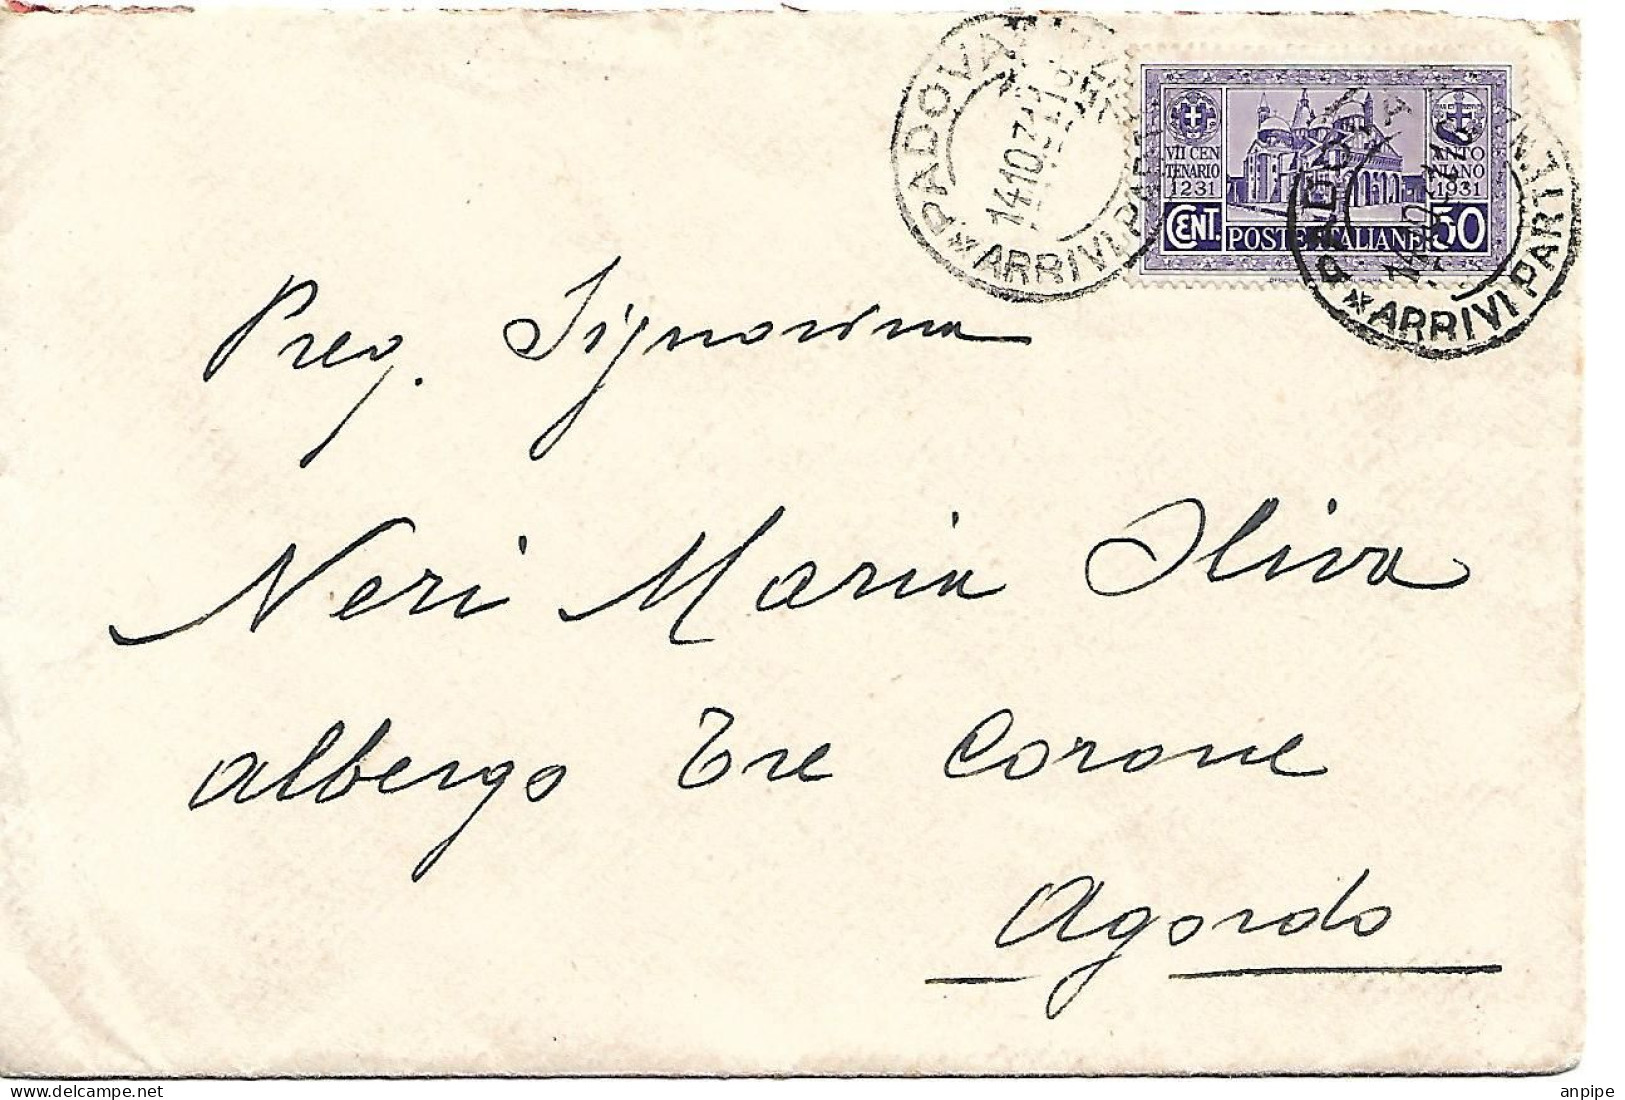 PADOVA
ARRIVI PARTENZE
VII CEN
TENARIO
1231
ANTO
NIANO
1931
CENT.
POSTE ITALIANE
50
PADOVA
ARRIVI PARTENZE
Preg. Signorina
Neri Maria Oliva
albergo Tre Corone
Agordo
anpipe